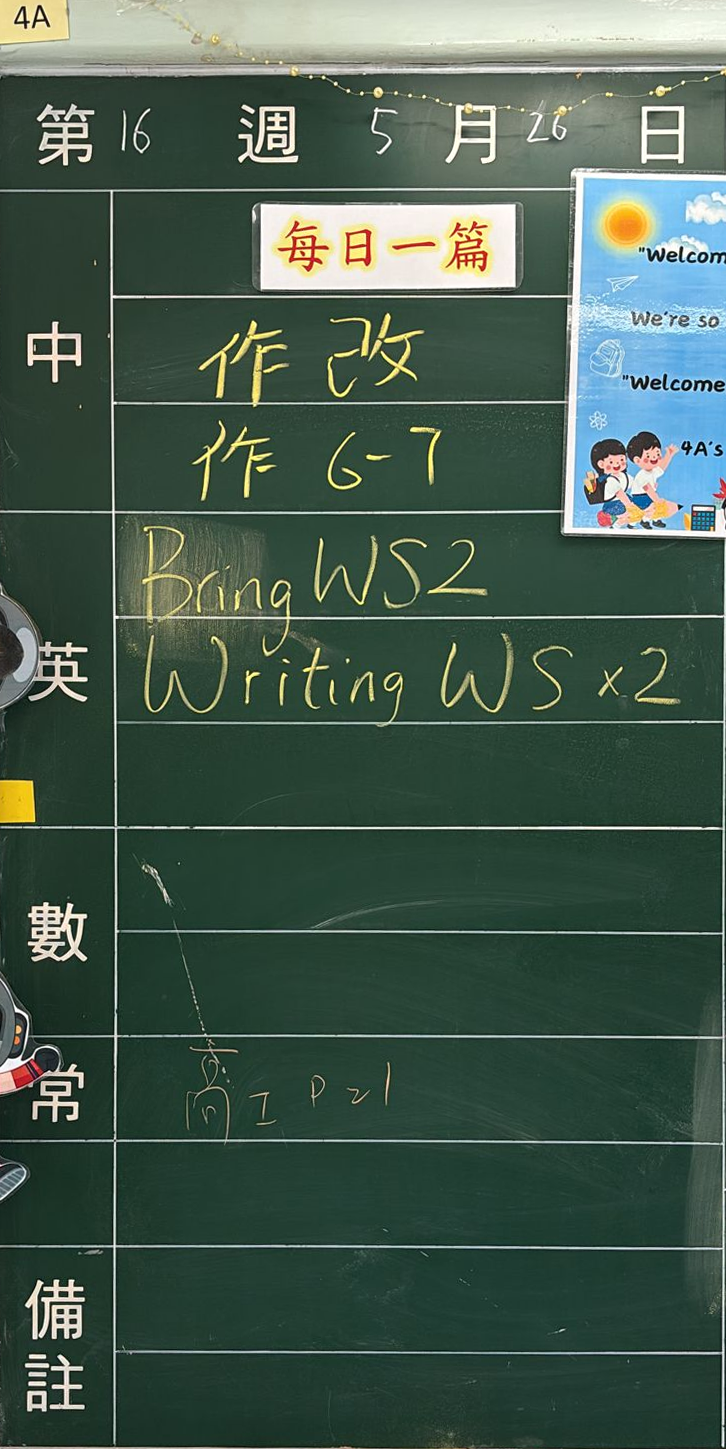 4A
第16週5月26日
每日一篇
中
作改
作6-7
英
Bring WS2
Writing WS ×2
數
常
高I P21
備註
"Welcom
We're so
"Welcome
4A's